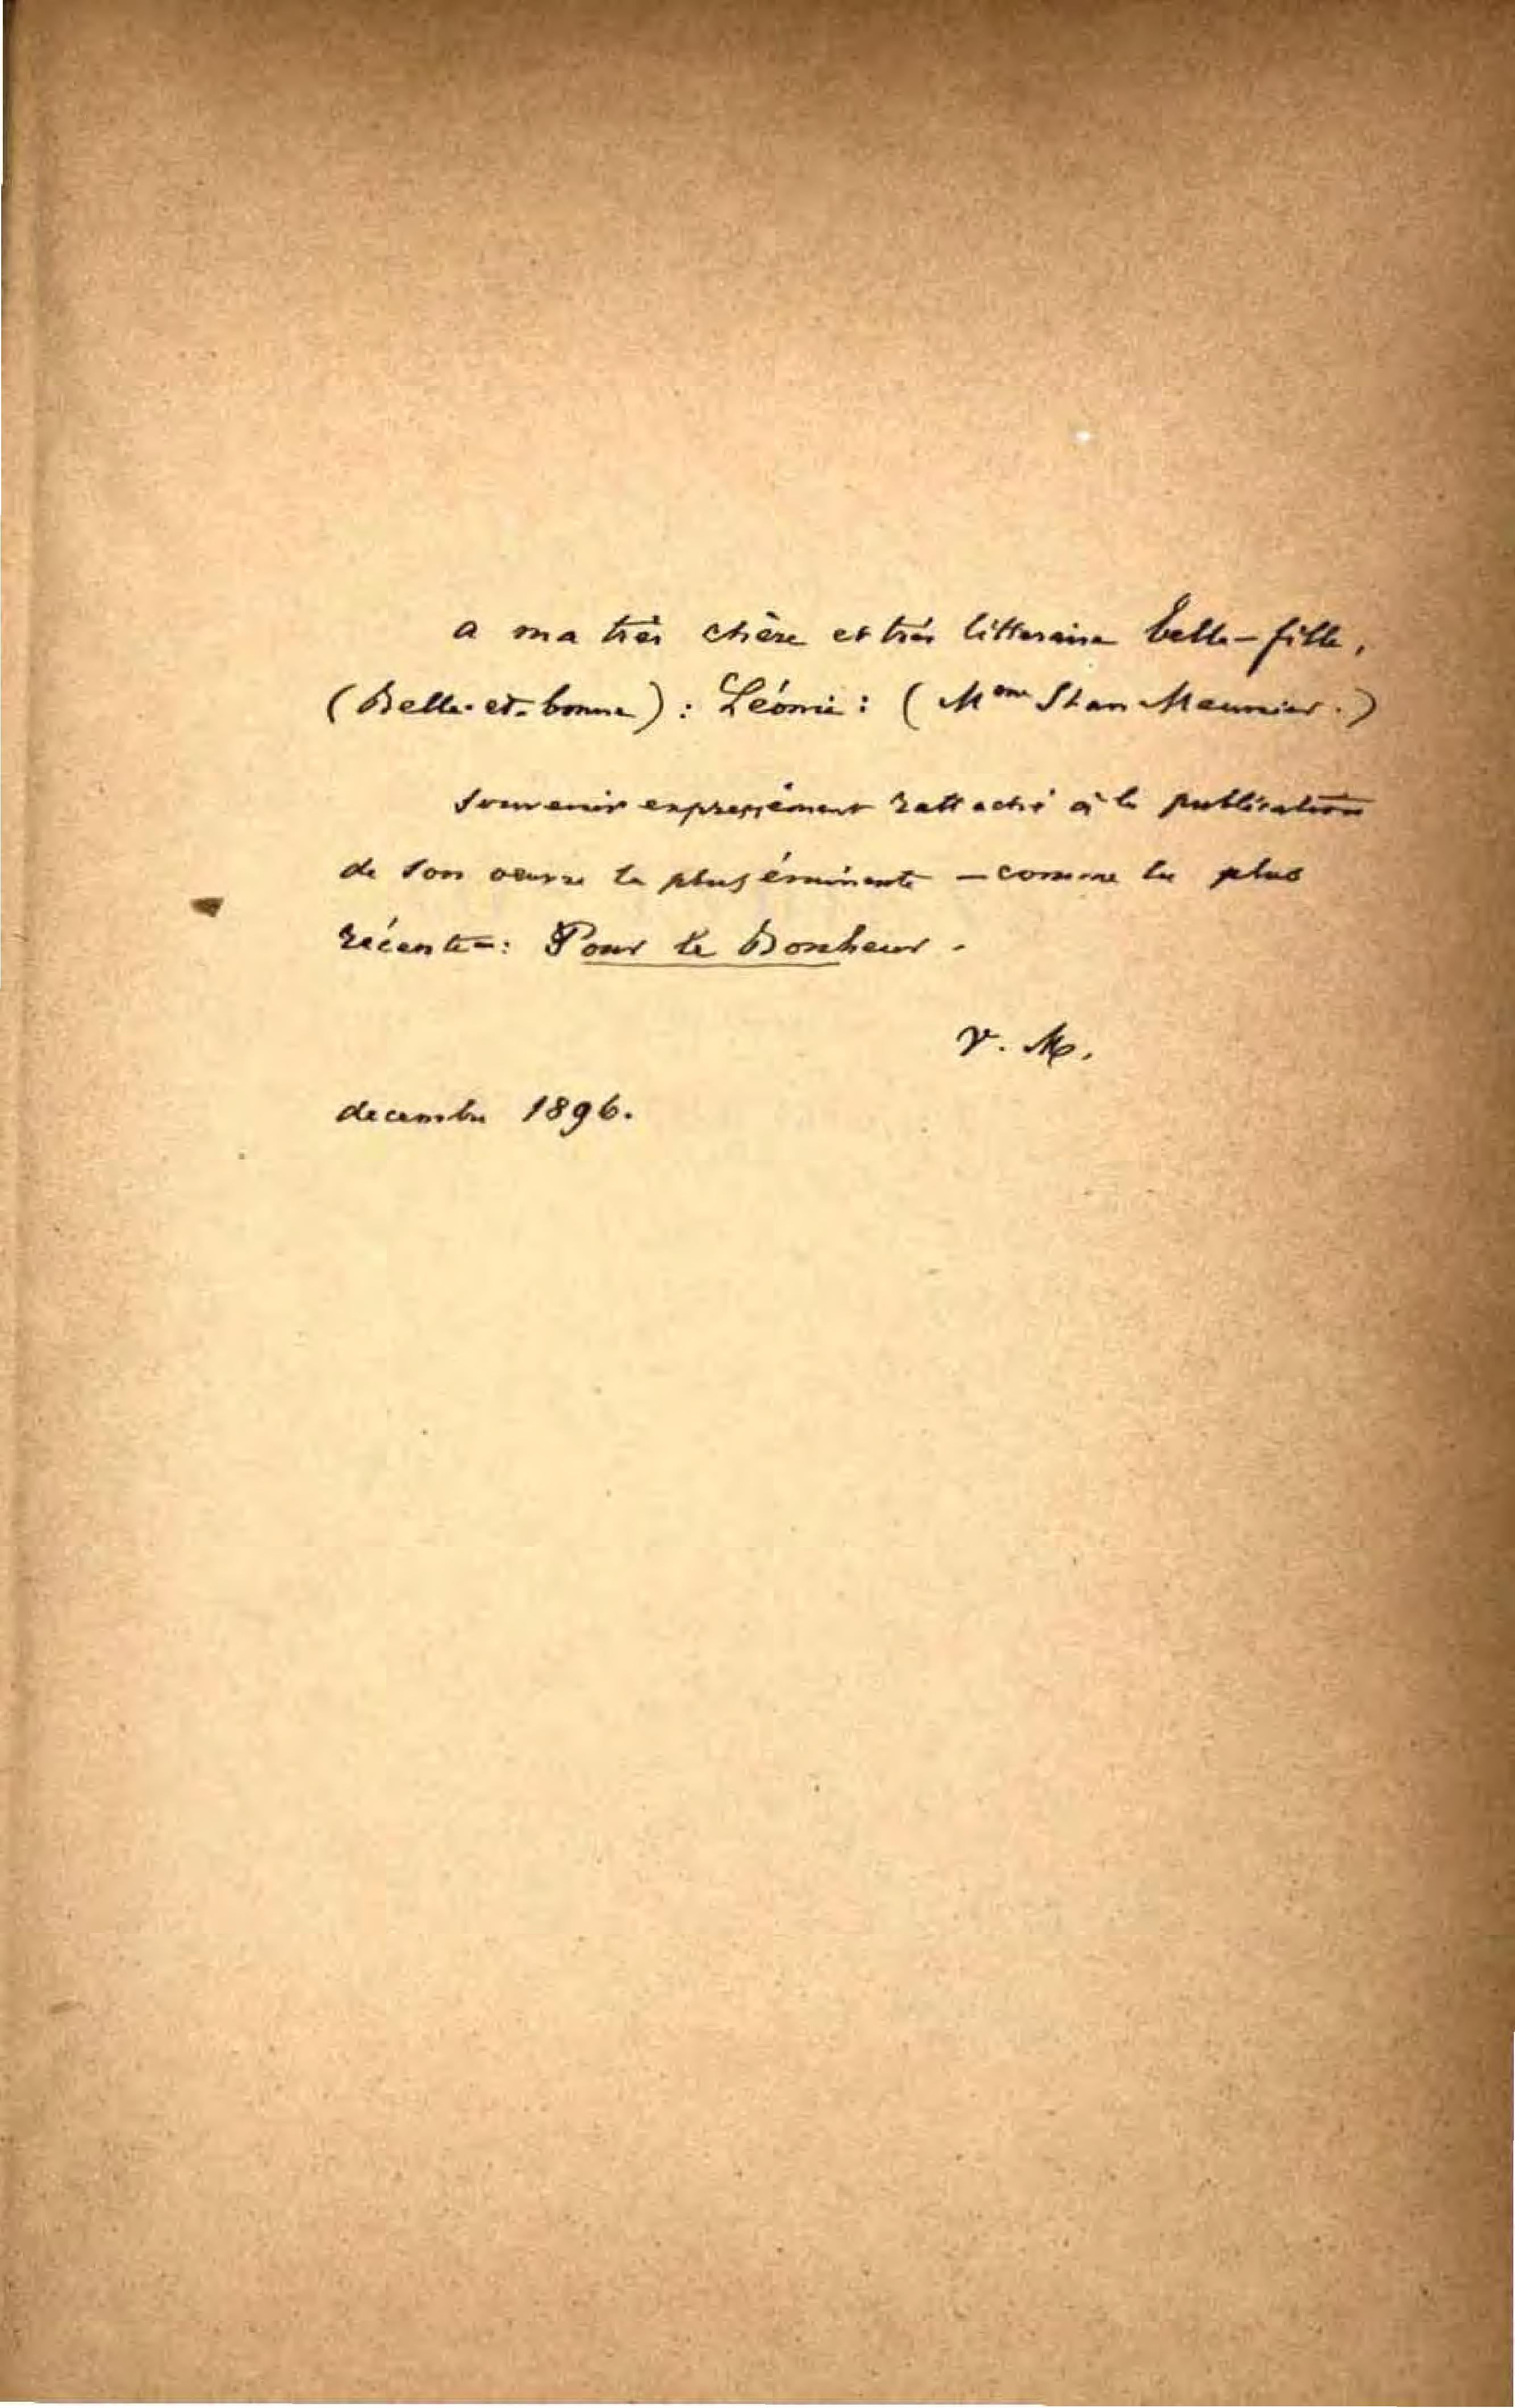 a ma très chère et très litteraire belle-fille,
(Belle-et-bonne) : Léonie : (Mme Stan Meunier.)
souvenir expressément rattaché à la publication
de son œuvre la plus éminente — comme la plus
récente — : Pour le Bonheur.
V. M.
decembre 1896.